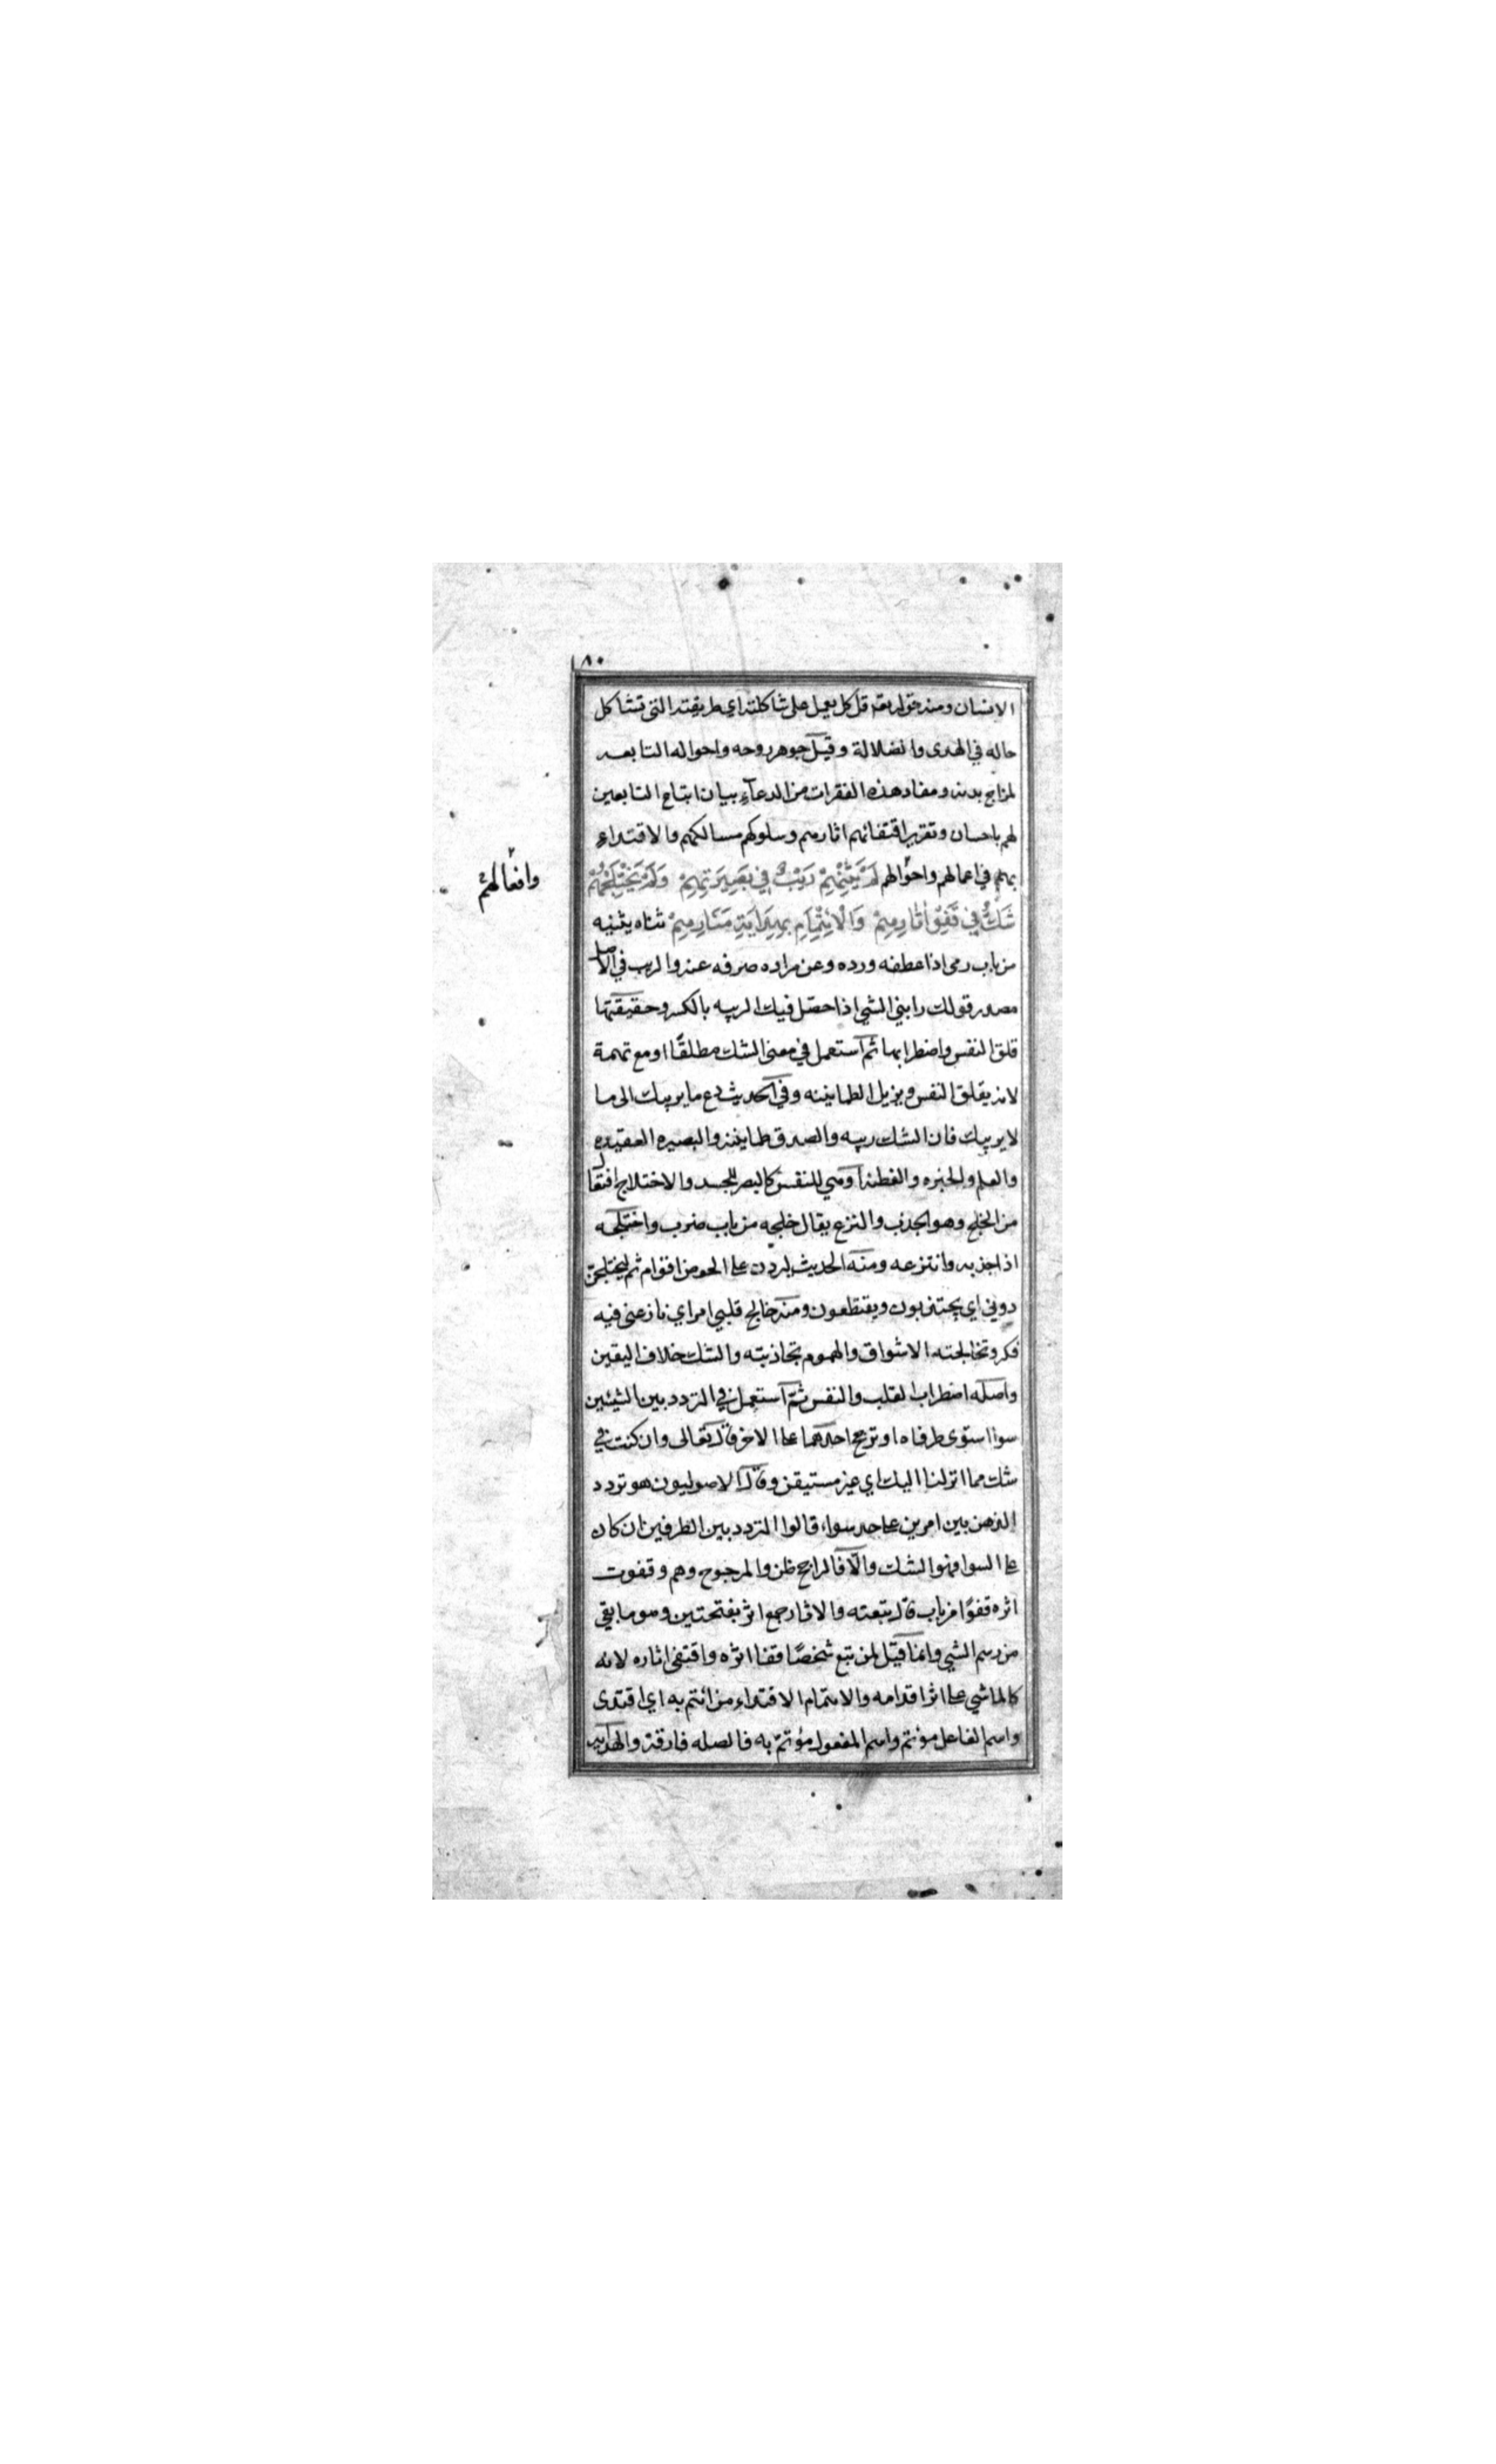 ٨٠
الانسان ومنه قوله تعه قل كل يعمل على شاكلته اي طريقته التي تشاكل
حاله في الهدى والضلالة وقيل جوهر روحه واحواله التابعه
لمزاج بدنه ومفاد هذه الفقرات من الدعآء بيان اتباع التابعين
لهم باحسان وتقرير اقتفائهم اثارهم وسلوكهم مسالكهم والاقتداء
بهم في اعمالهم واحوالهم لَمْ يَثْنِهِمْ رَيْبٌ فِي بَصِيرَتِهِمْ وَلَمْ يَخْتَلِجْهُمْ
وافعالهم
شَكٌّ فِي قَفْوِ اٰثَارِهِمْ وَالْاِئْتِمَامِ بِهِدَايَةِ مَنَارِهِمْ ثناه يثنيه
من باب رمى اذا عطفه ورده وعن مراده صرفه عنه والريب في الاصل
مصدر قولك رابني الشي اذا حصل فيك الريبه بالكسر وحقيقتها
قلق النفس واضطرابها ثم استعمل في معنى الشك مطلقًا او مع تهمة
لانه يقلق النفس ويزيل الطمانينه وفي الحديث دع ما يريبك الى ما
لا يريبك فان الشك ريبه والصدق طمانينه والبصيره العقيده
والعلم والخبره والفطنه وهي للنفس كالبصر للجسد والاختلاج افتعال
من الخلج وهو الجذب والنزع يقال خلجه من باب ضرب واختلجه
اذا جذبه وانتزعه ومنه الحديث ليردن على الحوض اقوام ثم ليختلجن
دوني اي يجتذبون ويقتطعون ومنه خالج قلبي امر اي نازعني فيه
فكر وتخالجته الاشواق والهموم تجاذبته والشك خلاف اليقين
واصله اضطراب القلب والنفس ثم استعمل في التردد بين الشيئين
سوا استوى طرفاه او ترجح احدهما على الاخر قال تعالى وان كنت في
شك مما انزلنا اليك اي غير مستيقن وقال الاصوليون هو تردد
الذهن بين امرين على حد سواء قالوا التردد بين الطرفين ان كان
على السوا فهو الشك والا فالراجح ظن والمرجوح وهم وقفوت
اثره قفوًا من باب قال تبعته والاثار جمع اثر بفتحتين وهو ما بقي
من رسم الشي وانما قيل لمن تبع شخصًا قفا اثره واقتفى اثاره لانه
كالماشي على اثر اقدامه والائتمام الاقتداء من ائتم به اي اقتدى
واسم الفاعل مؤتم واسم المفعول مؤتم به فالصله فارقة والهدايه